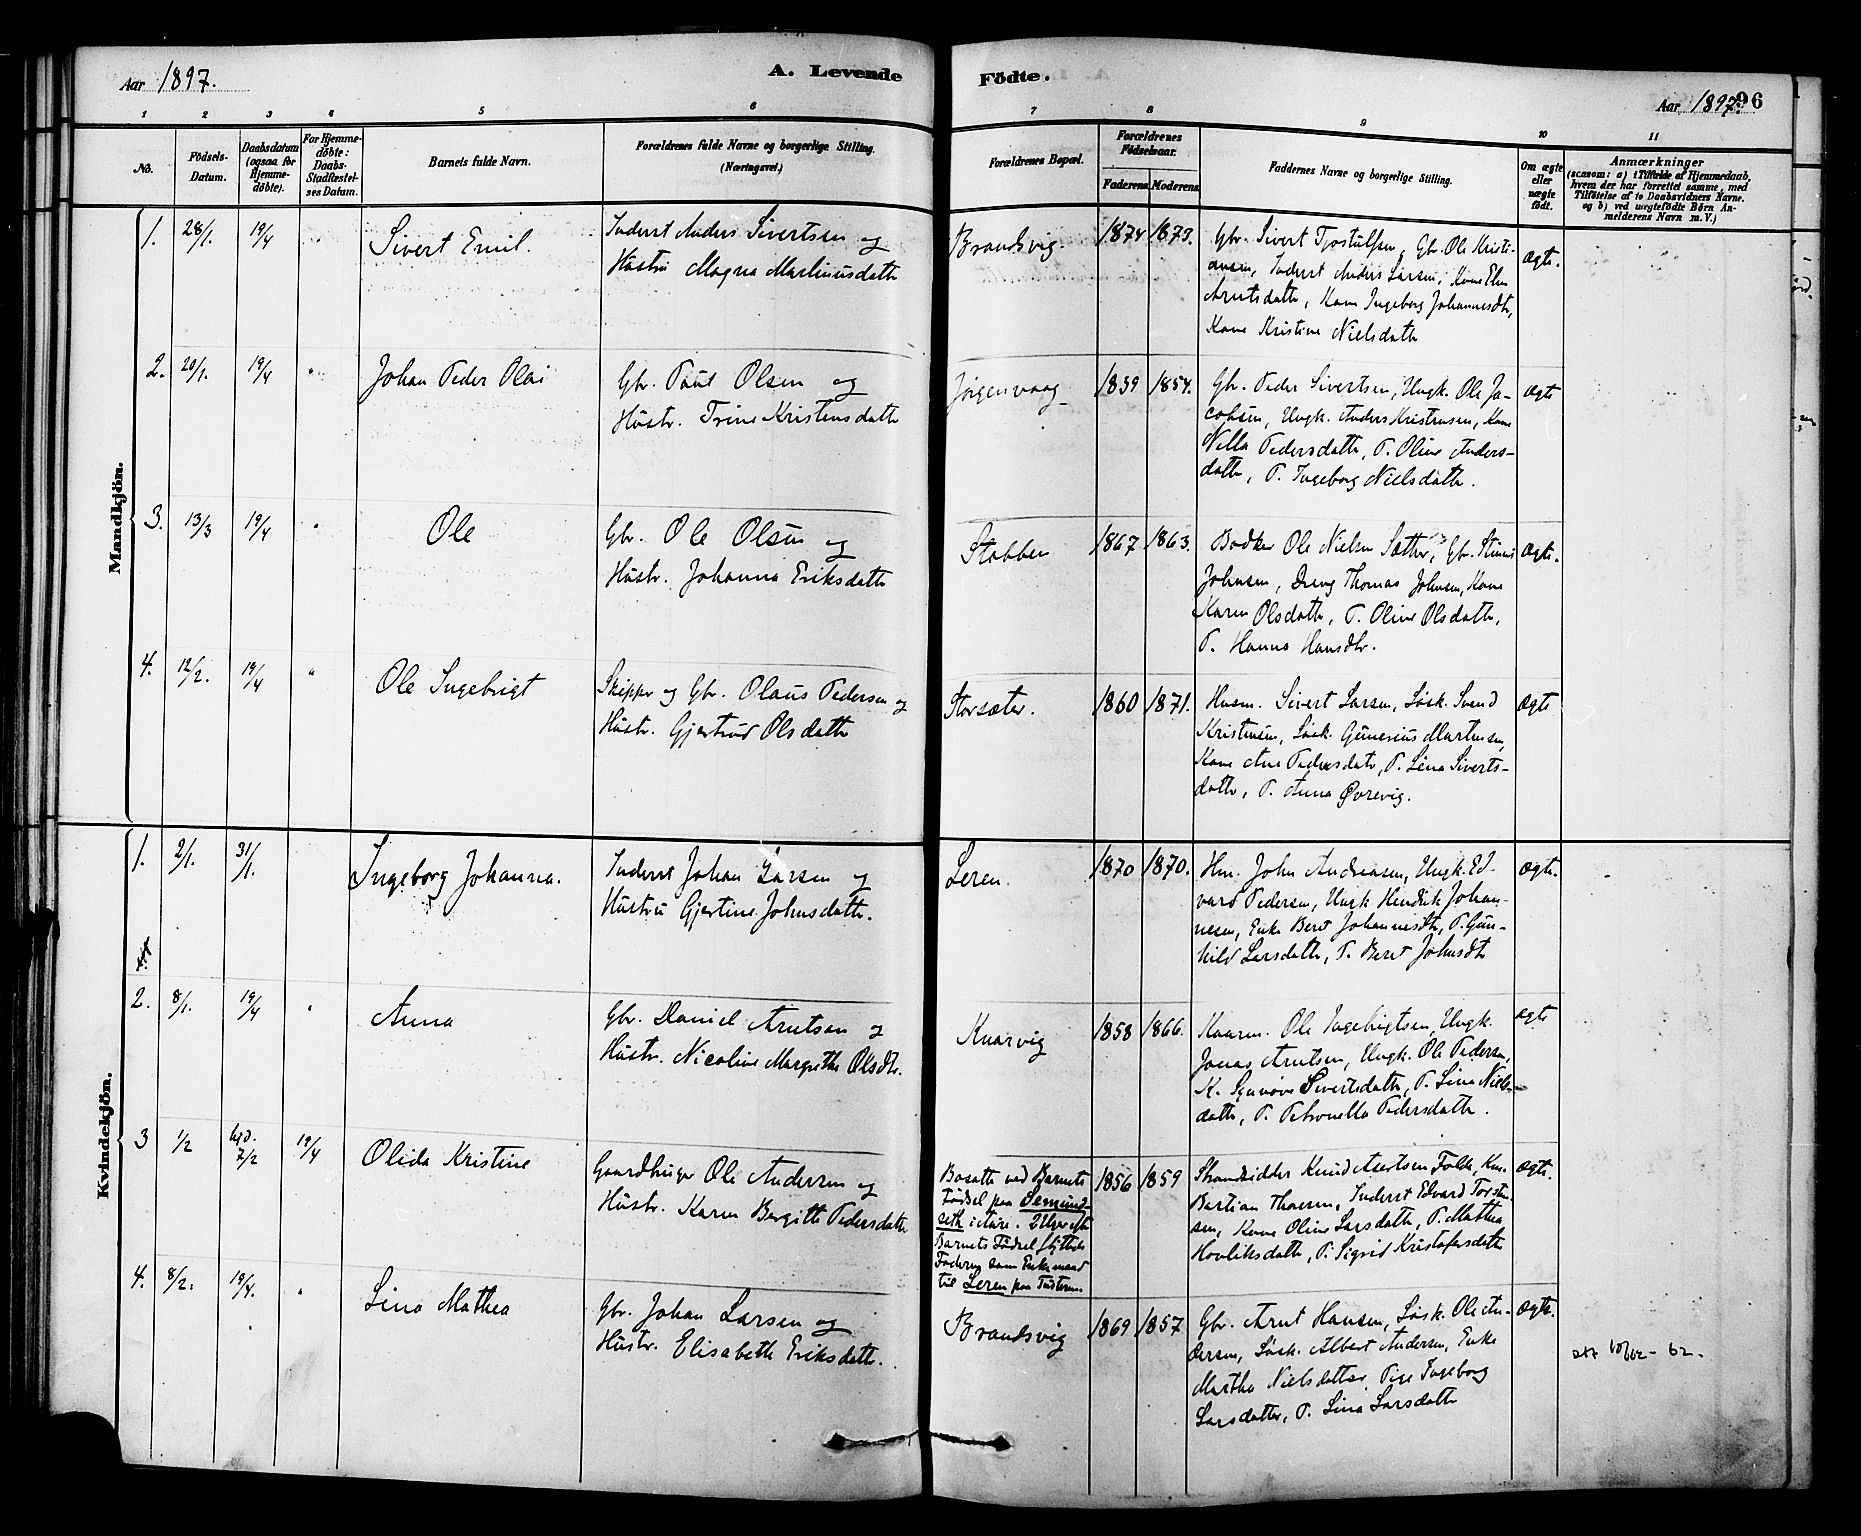 Aar 1897.
A. Levende
Födte.
Aar 1897.
96
1 2 3 4 5 6 7 8 9 10 11
No.
Födsels-
Datum.
Daabsdatum
(ogsaa for
Hjemme-
döbte).
For Hjemme-
döbte:
Daabs-
Stadfæstel-
ses Datum.
Barnets fulde Navn.
Forældrenes fulde Navne og borgerlige Stilling.
(Næringsvei.)
Forældrenes Bopæl.
Forældrenes
Födselsaar.
Faderens.
Moderens.
Faddernes Navne og borgerlige Stilling.
Om ægte
eller
uægte
født.
Anmærkninger
(saasom: a) i Tilfælde af Hjemmedaab,
hvem der har forrettet samme, med
Tilföielse af to Daabsvidners Navne.
og b) ved uægtefödte Börn An-
melderens Navn m. V.)
Mandkjön.
1.
28/1.
19/4
Sivert Emil.
Inderst Anders Sivertsen og
Hustru Magna Martinusdatter
Brandsvig
1874
1873.
Gbr. Sivert Tjostulfsen, Gbr. Ole Kristi-
ansen, Inderst Anders Larsen, Kone Elen
Arntsdatter, Kone Ingeborg Johannesdtr,
Kone Kristine Nielsdatter
ægte.
2.
20/1.
19/4
"
Johan Peder Olai
Gbr. Paul Olsen og
Hustr. Trine Kristensdatter
Jørgenvaag
1839
1854.
Gbr. Peder Sivertsen, Ungk. Ole Ja-
cobsen, Ungk. Anders Kristensen, Kone
Nilla Pedersdatter, P. Oline Anders-
datter, P. Ingeborg Nielsdatter.
ægte
3.
13/3
19/4
"
Ole
Gbr. Ole Olsen og
Hustr. Johanna Eriksdatter
Stabben
1867
1863.
Bødker Ole Nielsen Sætter, Gbr.
Johnsen, Dreng Thomas Johnsen, Kone
Karen Olsdatter, P. Oline Olsdatter,
P. Hanna Hansdtr.
ægte.
4.
12/2.
19/4
"
Ole Ingebrigt
Skipper og Gbr. Olaus Pedersen og
Hustr. Gjertrud Olsdatter
Storsæter.
1860
1871.
Husm. Sivert Larsen, Løsk. Svend
Kristensen, Løsk. Gunerius Martinsen,
Kone Ane Pedersdatr, P. Lina Siverts-
datter, P. Anna Øvrevig.
ægte
Kvindekjön.
1.
2/1.
31/1.
Ingeborg Johanna.
Inderst Johan Larsen og
Hustru Gjertine Johnsdatter.
Leren.
1870
1870.
Hm. John Andreasen, Ungk. Ed-
vard Pedersen, Ungk Hendrik Johan-
nesen, Enke Beret Johannesdtr, P. Gun-
hild Larsdatter, P. Beret Johnsdtr
ægte.
2.
8/1.
19/4
"
Anna
Gbr. Daniel Arntsen og
Hustr. Nicoline Margrethe Olsdtr.
Knarvig
1858
1866.
Kaarm. Ole Ingebrigtsen, Ungk.
Jonas Arntsen, Ungk. Ole Pedersen,
K. Synnøve Sivertsdatter, P. Lina Niels-
datter, P. Petronella Pedersdatter.
ægte
3
1/2
hjd.
7/2
19/4
Olida Kristine
Gaardbruger Ole Andersen og
Hustr. Karen Bergitte Pedersdatter
Bosatte ved Barnets
Fødsel paa Semund-
seth i Aure. Efter
Barnets Fødsel flyttede
Faderen som Enkemand
til Leren paa Tusteren.
1856
1859
Strandsidder Knud Asertsen Folde,
Bastian Thoresen, Inderst Edvard Torsten-
sen, Kone Oline Larsdatter, P. Mathea
Hovliksdatter, P. Sigrid Kristofersdatter
ægte.
4.
8/2.
19/4.
"
Lina Mathea
Gbr. Johan Larsen og
Hustr. Elisabeth Eriksdatter.
Brandsvig
1869
1857
Gbr. Arnt Hansen, Løsk. Ole An-
dersen, Løsk. Albert Andersen, Enke
Martha Nielsdatter, Pige Ingeborg
Larsdatter, P. Lina Larsdatter
ægte.